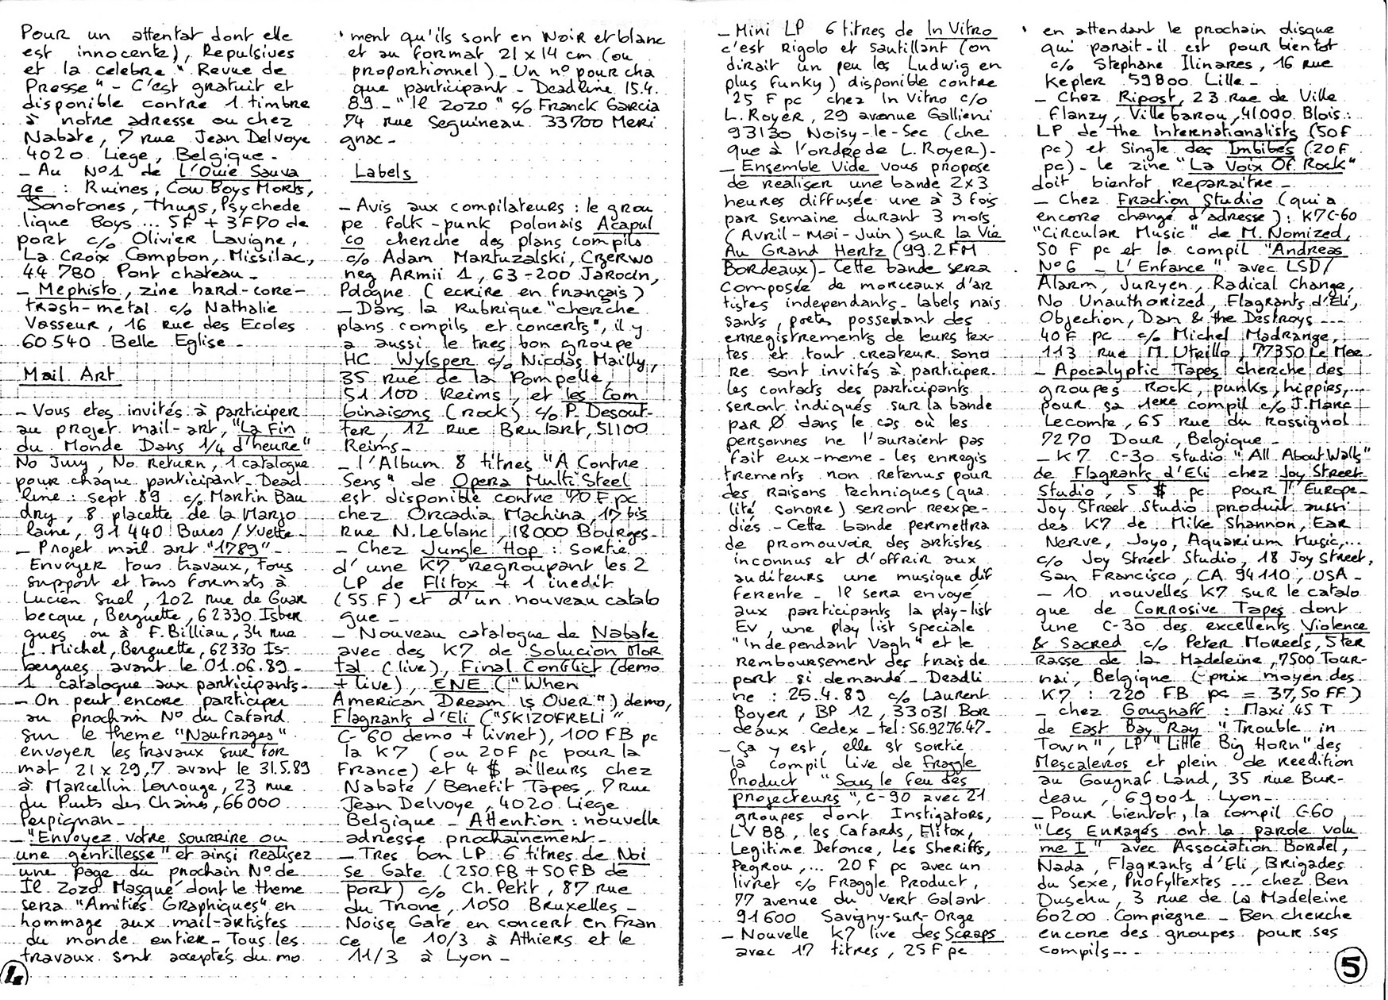 Pour un attentat dont elle
est innocente), Repulsives
et la celebre "Revue de
Presse" - C'est gratuit et
disponible contre 1 timbre
à notre adresse ou chez
Nabate, 7 rue Jean Delvoye
4020 Liege, Belgique -
- Au N°1 de l'Ouïe Sauva
ge : Ruines, Cow Boys Morts,
Sonotones, Thugs, Psychede
lique Boys ... 5F + 3F70 de
port c/o Olivier Lavigne,
La Croix Campbon, Missilac,
44780 Pont chateau -
- Mephisto, zine hard-core-
trash-metal c/o Nathalie
Vasseur, 16 rue des Ecoles
60540 Belle Eglise -
Mail Art
- Vous etes invités à participer
au projet mail-art, "La Fin
du Monde Dans 1/4 d'heure"
No Jury, No Return, 1 catalogue
pour chaque participant - Dead
line : sept 89 c/o Martin Bau
dry, 8 placette de la Marjo
laine, 91440 Bures / Yvette -
- Projet mail art "1789" -
Envoyer tous travaux, tous
support et tous formats à
Lucien Suel, 102 rue de Guar
becque, Berguette, 62330 Isber
gues ou à F. Billiau, 34 rue
L. Michel, Berguette, 62330 Is-
bergues avant le 01.06.89 -
1 catalogue aux participants -
- On peut encore participer
au prochain N° du Cafard
sur le theme "Naufrages"
envoyer les travaux sur for
mat 21 x 29,7 avant le 31.5.89
à Marcellin Lerouge, 23 rue
du Puits des Chaines, 66000
Perpignan -
- "Envoyez votre sourire ou
une gentillesse" et ainsi realisez
une page du prochain N° de
Il Zozo Masqué dont le theme
sera "Amitiés Graphiques" en
hommage aux mail-artistes
du monde entier - Tous les
travaux sont acceptés du mo
4
ment qu'ils sont en Noir et blanc
et au format 21 x 14 cm (ou
proportionnel) - Un n° pour cha
que participant - Deadline 15.4.
89 - "Il Zozo" c/o Franck Garcia
74 rue Seguineau 33700 Meri
gnac -
Labels
- Avis aux compilateurs : le grou
pe folk-punk polonais Acapul
co cherche des plans compils
c/o Adam Martuzalski, Czerwo
nej Armii 1, 63-200 Jarocin,
Pologne (ecrire en français)
- Dans la rubrique "cherche
plans compils et concerts", il y
a aussi le tres bon groupe
HC Wylsper c/o Nicolas Mailly,
35 rue de la Pompelle
51100 Reims, et les Com
binaisons (rock) c/o P. Desout-
ter, 12 rue Brulart, 51100
Reims -
- l'Album 8 titres "A Contre
Sens" de Opera Multi Steel
est disponible contre 70 F pc
chez Orcadia Machina, 17 bis
Rue N. Leblanc, 18000 Bourges -
- Chez Jungle Hop : sortie
d'une K7 regroupant les 2
LP de Flitox + 1 inedit
(55 F) et d'un nouveau catalo
gue -
- Nouveau catalogue de Nabate
avec des K7 de Solucion Mor
tal (live), Final Conflict (demo
+ live), ENE ("When
American Dream is Over") demo,
Flagrants d'Eli ("SKIZOFRELI"
C-60 demo + livret), 100 FB pc
la K7 (ou 20F pc pour la
France) et 4 $ ailleurs chez
Nabate / Benefit Tapes, 7 Rue
Jean Delvoye, 4020 Liege
Belgique - Attention : nouvelle
adresse prochainement -
- Tres bon LP 6 titres de Noi
se Gate (250 FB + 50 FB de
port) c/o Ch. Petit, 87 rue
du Trone, 1050 Bruxelles -
Noise Gate en concert en Fran
ce le 10/3 à Athiers et le
11/3 à Lyon -
- Mini LP 6 titres de In Vitro
c'est Rigolo et sautillant (on
dirait un peu les Ludwig en
plus funky) disponible contre
25 F pc chez In Vitro c/o
L. Royer, 29 avenue Gallieni
93130 Noisy-le-Sec (che
que à l'ordre de L. Royer) -
- Ensemble Vide vous propose
de realiser une bande 2 x 3
heures diffusée une à 3 fois
par semaine durant 3 mois
(Avril - Mai - Juin) sur la Vie
Au Grand Hertz (99.2 FM
Bordeaux) - Cette bande sera
composée de morceaux d'ar
tistes independants - labels nais
sants, poetes possedant des
enregistrements de leurs tex-
tes et tout createur sono
re sont invités à participer.
les contacts des participants
seront indiqués sur la bande
par Ø dans le cas où les
personnes ne l'auraient pas
fait eux-meme - les enregis
trements non retenus pour
des raisons techniques (qua
lité sonore) seront reexpe-
diés - Cette bande permettra
de promouvoir des artistes
inconnus et d'offrir aux
auditeurs une musique dif
ferente - Il sera envoyé
aux participants la play-list
EV, une play list speciale
"Independant Vagh" et le
Remboursement des frais de
port si demandé - Deadli
ne : 25.4.89 c/o Laurent
Boyer, BP 12, 33031 Bor
deaux Cedex - tel : 56.92.76.47 -
- Ça y est, elle st sortie
la compil live de Fraggle
Product "Sous le feu des
projecteurs", C-90 avec 21
groupes dont Instigators,
LV 88, les Cafards, Flitox,
Legitime Defonce, Les Sheriffs,
Pegrou, ... 20 F pc avec un
livret c/o Fraggle Product,
77 avenue du Vert Galant
91600 Savigny-sur-Orge
- Nouvelle K7 live des Scraps
avec 17 titres, 25 F pc
en attendant le prochain disque
qui parait-il est pour bientot
c/o Stephane Ilinares, 16 rue
Kepler 59800 Lille -
- Chez Ripost, 23 rue de Ville
Flanzy, Villebarou, 41000 Blois :
LP de the Internationalists (50F
pc) et Single des Imbibés (20 F
pc) - le zine "La Voix Of Rock"
doit bientot reparaitre -
- Chez Fraction Studio (qui a
encore changé d'adresse) : K7 C-60
"Circular Music" de M. Nomized,
50 F pc et la compil "Andreas
N°6 - L'Enfance" avec LSD/
Alarm, Juryen, Radical Change,
No Unauthorized, Flagrants d'Eli,
Objection, Dan & the Destroys ---
40F pc c/o Michel Madrange,
113 rue M. Utrillo, 77350 Le Mee
- Apocalyptic Tapes cherche des
groupes rock, punks, hippies, ...
pour sa 1ere compil c/o J. Marc
Lecomte, 65 rue du Rossignol
7270 Dour, Belgique -
- K7 C-30 studio "All About Walls"
de Flagrants d'Eli chez Joy Street
Studio, 5 $ pc pour l'Europe -
Joy Street Studio produit aussi
des K7 de Mike Shannon, Ear
Nerve, Joyo, Aquarium Music, ...
c/o Joy Street Studio, 18 Joy Street,
San Francisco, CA 94110, USA -
- 10 nouvelles K7 sur le catalo
gue de Corrosive Tapes dont
une C-30 des excellents Violence
& Sacred c/o Peter Moreels, 5 ter
rasse de la Madeleine, 7500 Tour-
nai, Belgique (-prix moyen des
K7 : 220 FB pc = 37,50 FF)
- chez Gougnaff : Maxi 45 T
de East Bay Ray "Trouble in
Town", LP "Little Big Horn" des
Mescaleros et plein de reedition
au Gougnaf Land, 35 rue Bur-
deau, 69001 Lyon -
- Pour bientot, la compil C-60
"Les Enragés ont la parole volu
me I" avec Association Bordel,
Nada, Flagrants d'Eli, Brigades
du Sexe, Profyltextes ... chez Ben
Duschu, 3 rue de la Madeleine
60200 Compiegne - Ben cherche
encore des groupes pour ses
compils ---
5